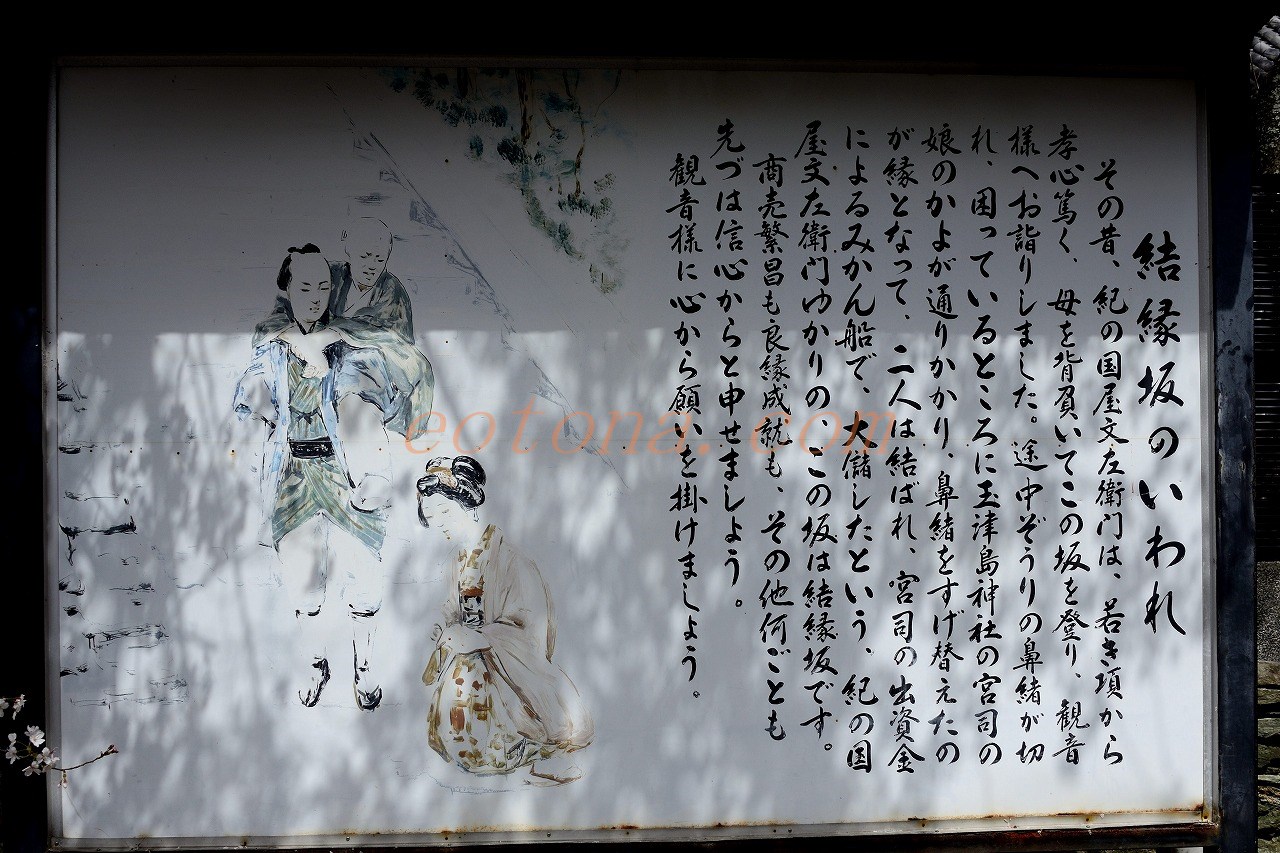 結縁坂のいわれ
その昔、紀の国屋文左衛門は、若き項から
孝心篤く、母を背負いてこの坂を登り、観音
様へお詣りしました。途中ぞうりの鼻緒が切
れ、困っているところに玉津島神社の宮司の
娘のかよが通りかかり、鼻緒をすげ替えたの
が縁となって、二人は結ばれ、宮司の出資金
によるみかん船で、大儲したという、紀の国
屋文左衛門ゆかりの、この坂は結縁坂です。
商売繁昌も良縁成就も、その他何ごとも
先づは信心からと申せましょう。
観音様に心から願いを掛けましょう。
eotona.com